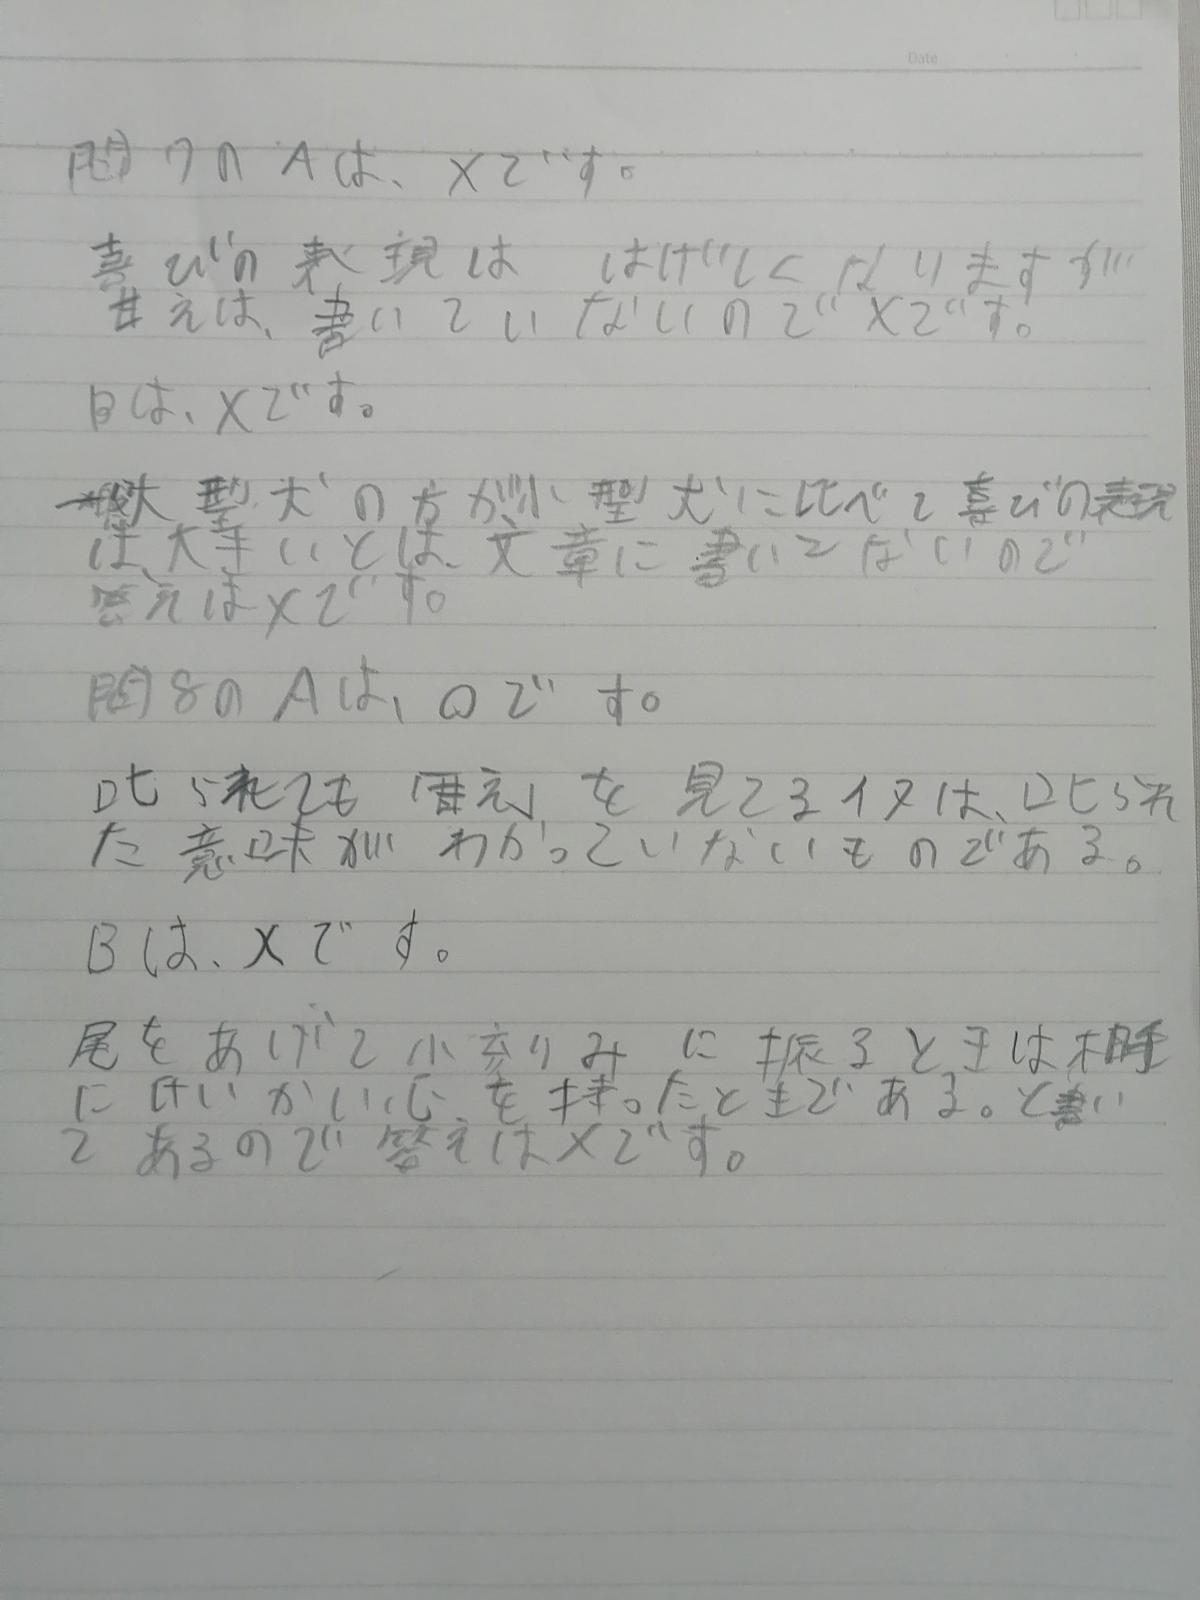 Date
問7のAは、×です。
喜びの表現は はげしくなりますが
甘えは、書いていないので×です。
Bは、×です。
大型犬の方が小型犬に比べて喜びの表現
は、大きいとは、文章に書いてないので
答えは×です。
問8のAは、○です。
叱られても「甘え」を見てるイヌは、叱られ
た意味がわかっていないものである。
Bは、×です。
尾をあげて小刻みに振るときは相手
にけいかい心を持ったときである。と書い
てあるので答えは×です。